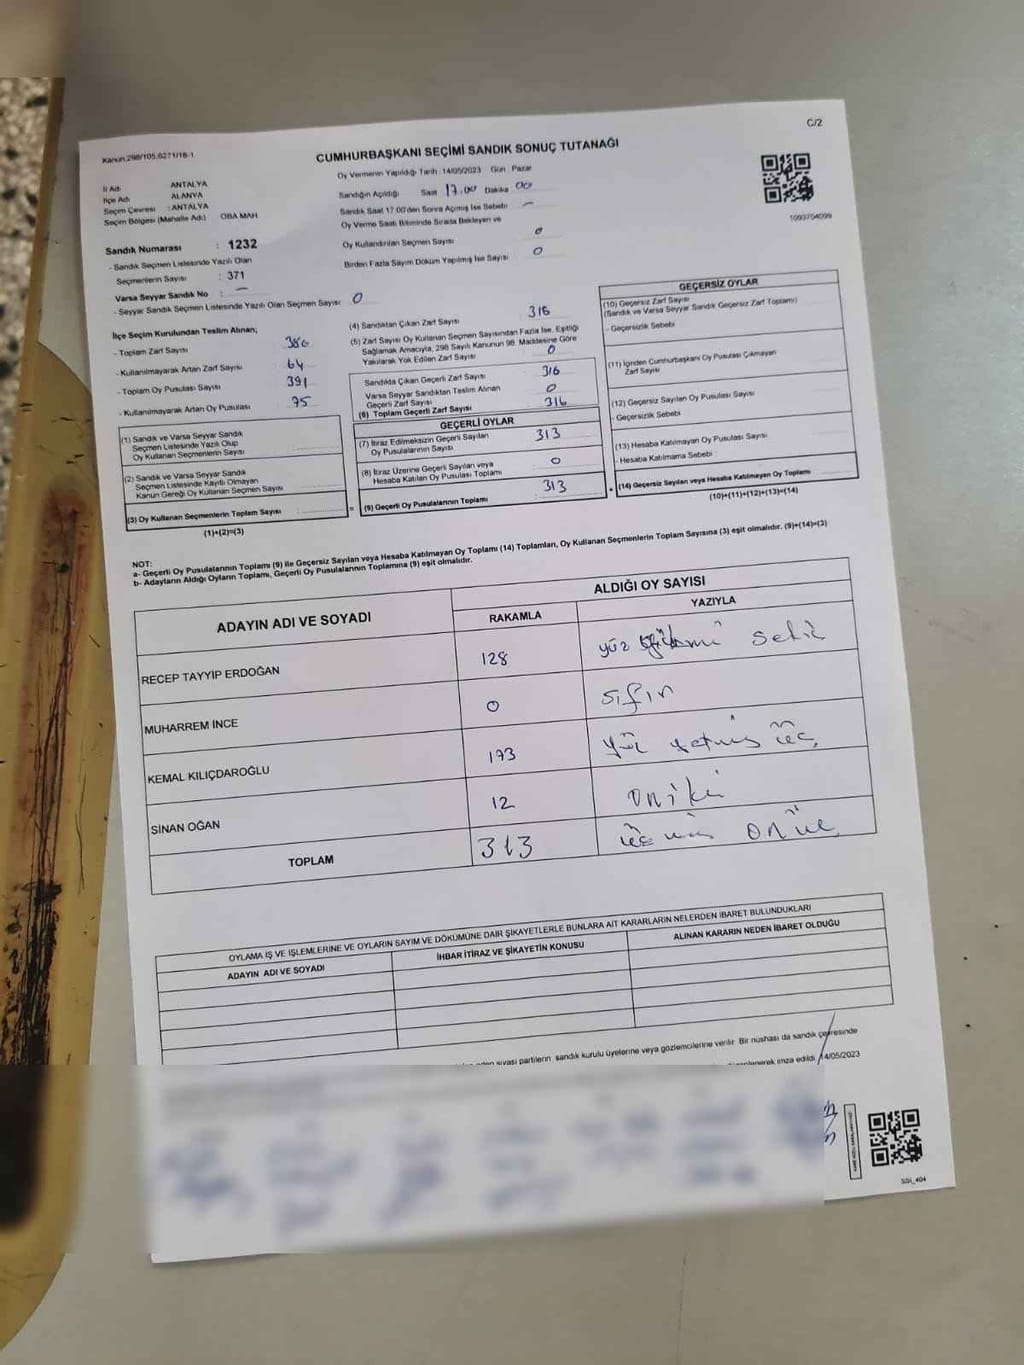 C/2
Kanun:298/105,6271/18-1
CUMHURBAŞKANI SEÇİMİ SANDIK SONUÇ TUTANAĞI
İl Adı : ANTALYA
İlçe Adı : ALANYA
Seçim Çevresi : ANTALYA
Seçim Bölgesi (Mahalle Adı) OBA MAH
Oy Vermenin Yapıldığı Tarih :14/05/2023 Gün Pazar
Sandığın Açıldığı Saat 17.00 Dakika 00
Sandık Saat 17.00'den Sonra Açımış İse Sebebi –
Oy Verme Saati Bitiminde Sırada Bekleyen ve
Oy Kullandırılan Seçmen Sayısı 0
Birden Fazla Sayım Döküm Yapılmış İse Sayısı 0
1093704099
Sandık Numarası : 1232
- Sandık Seçmen Listesinde Yazılı Olan
Seçmenlerin Sayısı : 371
Varsa Seyyar Sandık No : –
- Seyyar Sandık Seçmen Listesinde Yazılı Olan Seçmen Sayısı 0
İlçe Seçim Kurulundan Teslim Alınan;
- Toplam Zarf Sayısı 380
- Kullanılmayarak Artan Zarf Sayısı 64
- Toplam Oy Pusulası Sayısı 391
- Kullanılmayarak Artan Oy Pusulası 75
(1) Sandık ve Varsa Seyyar Sandık
Seçmen Listesinde Yazılı Olup
Oy Kullanan Seçmenlerin Sayısı
(2) Sandık ve Varsa Seyyar Sandık
Seçmen Listesinde Kayıtlı Olmayan
Kanun Gereği Oy Kullanan Seçmen Sayısı
(3) Oy Kullanan Seçmenlerin Toplam Sayısı :
(1)+(2)=(3)
(4) Sandıktan Çıkan Zarf Sayısı 316
(5) Zarf Sayısı Oy Kullanan Seçmen Sayısından Fazla İse, Eşitliği
Sağlamak Amacıyla, 298 Sayılı Kanunun 98. Maddesine Göre
Yakılarak Yok Edilen Zarf Sayısı 0
Sandıkta Çıkan Geçerli Zarf Sayısı 316
Varsa Seyyar Sandıktan Teslim Alınan
Geçerli Zarf Sayısı 0
(6) Toplam Geçerli Zarf Sayısı 316
GEÇERLİ OYLAR
(7) İtiraz Edilmeksizin Geçerli Sayılan
Oy Pusulalarının Sayısı 313
(8) İtiraz Üzerine Geçerli Sayılan veya
Hesaba Katılan Oy Pusulası Toplamı 0
= (9) Geçerli Oy Pusulalarının Toplamı : 313
GEÇERSİZ OYLAR
(10) Geçersiz Zarf Sayısı
(Sandık ve Varsa Seyyar Sandık Geçersiz Zarf Toplamı)
- Geçersizlik Sebebi
(11) İçinden Cumhurbaşkanı Oy Pusulası Çıkmayan
Zarf Sayısı
(12) Geçersiz Sayılan Oy Pusulası Sayısı
- Geçersizlik Sebebi
(13) Hesaba Katılmayan Oy Pusulası Sayısı
- Hesaba Katılmama Sebebi
+ (14) Geçersiz Sayılan veya Hesaba Katılmayan Oy Toplamı
(10)+(11)+(12)+(13)=(14)
NOT:
a- Geçerli Oy Pusulalarının Toplamı (9) ile Geçersiz Sayılan veya Hesaba Katılmayan Oy Toplamı (14) Toplamları, Oy Kullanan Seçmenlerin Toplam Sayısına (3) eşit olmalıdır. (9)+(14)=(3)
b- Adayların Aldığı Oyların Toplamı, Geçerli Oy Pusulalarının Toplamına (9) eşit olmalıdır.
ADAYIN ADI VE SOYADI
ALDIĞI OY SAYISI
RAKAMLA YAZIYLA
RECEP TAYYİP ERDOĞAN 128 yüz
MUHARREM İNCE 0 sıfır
KEMAL KILIÇDAROĞLU 173 yüz yetmiş üç
SİNAN OĞAN 12 oniki
TOPLAM 313
OYLAMA İŞ VE İŞLEMLERİNE VE OYLARIN SAYIM VE DÖKÜMÜNE DAİR ŞİKAYETLERLE BUNLARA AİT KARARLARIN NELERDEN İBARET BULUNDUKLARI
ADAYIN ADI VE SOYADI İHBAR İTİRAZ VE ŞİKAYETİN KONUSU ALINAN KARARIN NEDEN İBARET OLDUĞU
siyasi partilerin sandık kurulu üyelerine veya gözlemcilerine verilir. Bir nüshası da sandık çevresinde
imza edildi. 14/05/2023
SSI_404